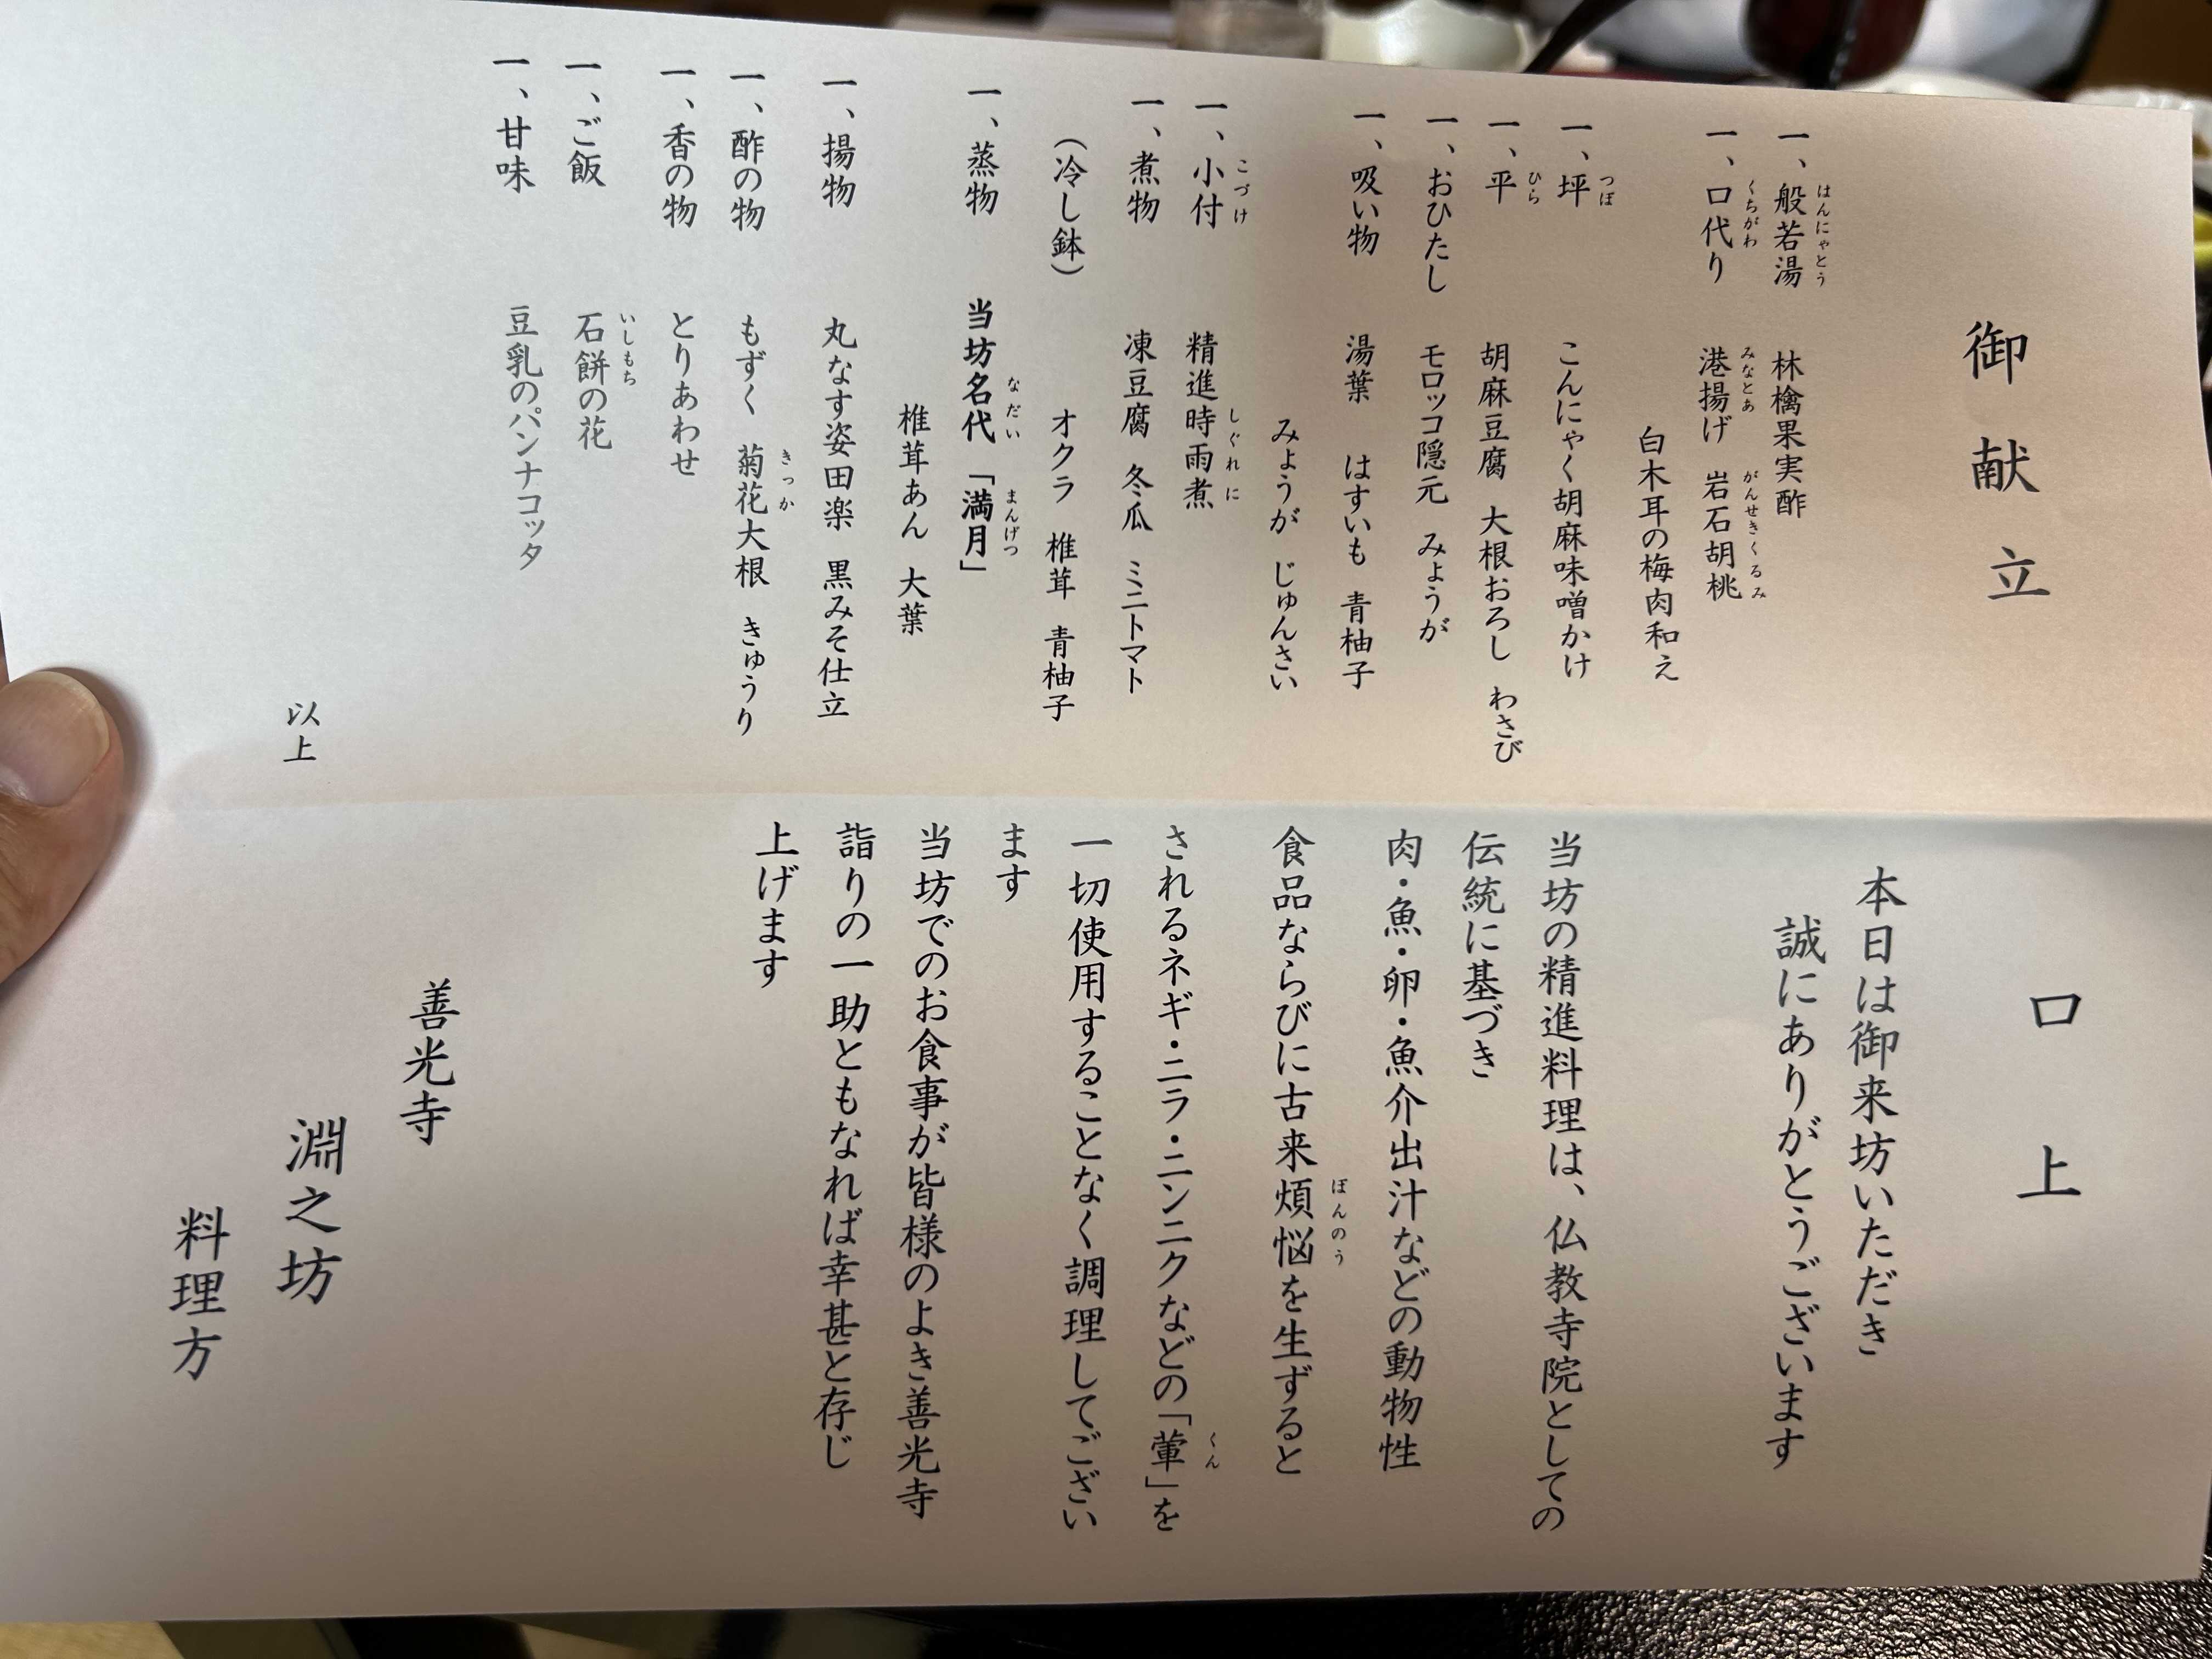 御献立
一、般若湯 林檎果実酢
はんにゃとう
一、口代り 港揚げ 岩石胡桃
くちがわ みなとあ がんせきくるみ
白木耳の梅肉和え
一、坪 こんにゃく胡麻味噌かけ
つぼ
一、平 胡麻豆腐 大根おろし わさび
ひら
一、おひたし モロッコ隠元 みょうが
一、吸い物 湯葉 はすいも 青柚子
みょうが じゅんさい
一、小付 精進時雨煮
こづけ しぐれに
一、煮物 凍豆腐 冬瓜 ミニトマト
(冷し鉢) オクラ 椎茸 青柚子
一、蒸物 当坊名代「満月」
なだい まんげつ
椎茸あん 大葉
一、揚物 丸なす姿田楽 黒みそ仕立
一、酢の物 もずく 菊花大根 きゅうり
きっか
一、香の物 とりあわせ
一、ご飯 石餅の花
いしもち
一、甘味 豆乳のパンナコッタ
以上
口上
本日は御来坊いただき
誠にありがとうございます
当坊の精進料理は、仏教寺院としての
伝統に基づき
肉・魚・卵・魚介出汁などの動物性
食品ならびに古来煩悩を生ずると
ぼんのう
されるネギ・ニラ・ニンニクなどの「葷」を
くん
一切使用することなく調理してござい
ます
当坊でのお食事が皆様のよき善光寺
詣りの一助ともなれば幸甚と存じ
上げます
善光寺
淵之坊
料理方